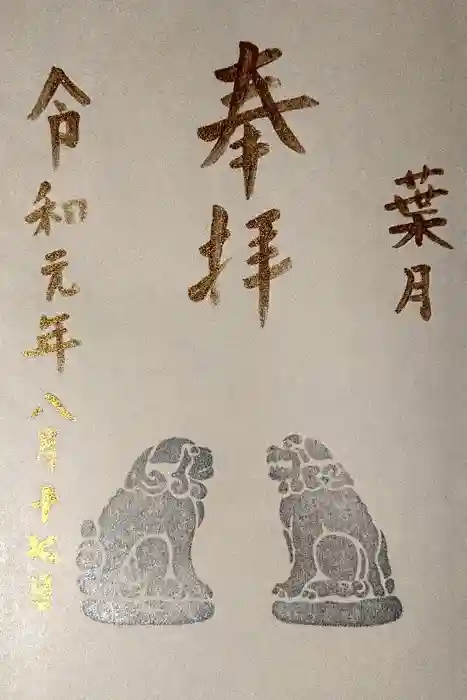 葉月
奉拝
令和元年八月十